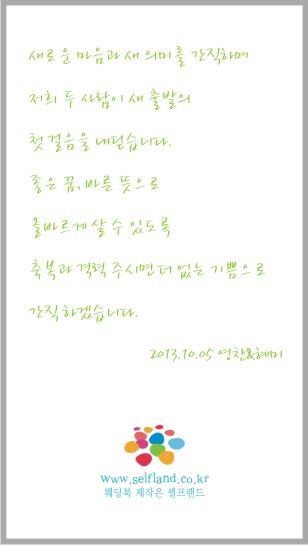 새로운 마음과 새 의미를 간직하며
저희 두 사람이 새 출발의
첫 걸음을 내딛습니다.
좋은 꿈, 바른 뜻으로
올바르게 살 수 있도록
축복과 격력 주시면 더 없는 기쁨으로
간직하겠습니다.
2013.10.05 영찬&혜미
www.selfland.co.kr
웨딩북 제작은 셀프랜드